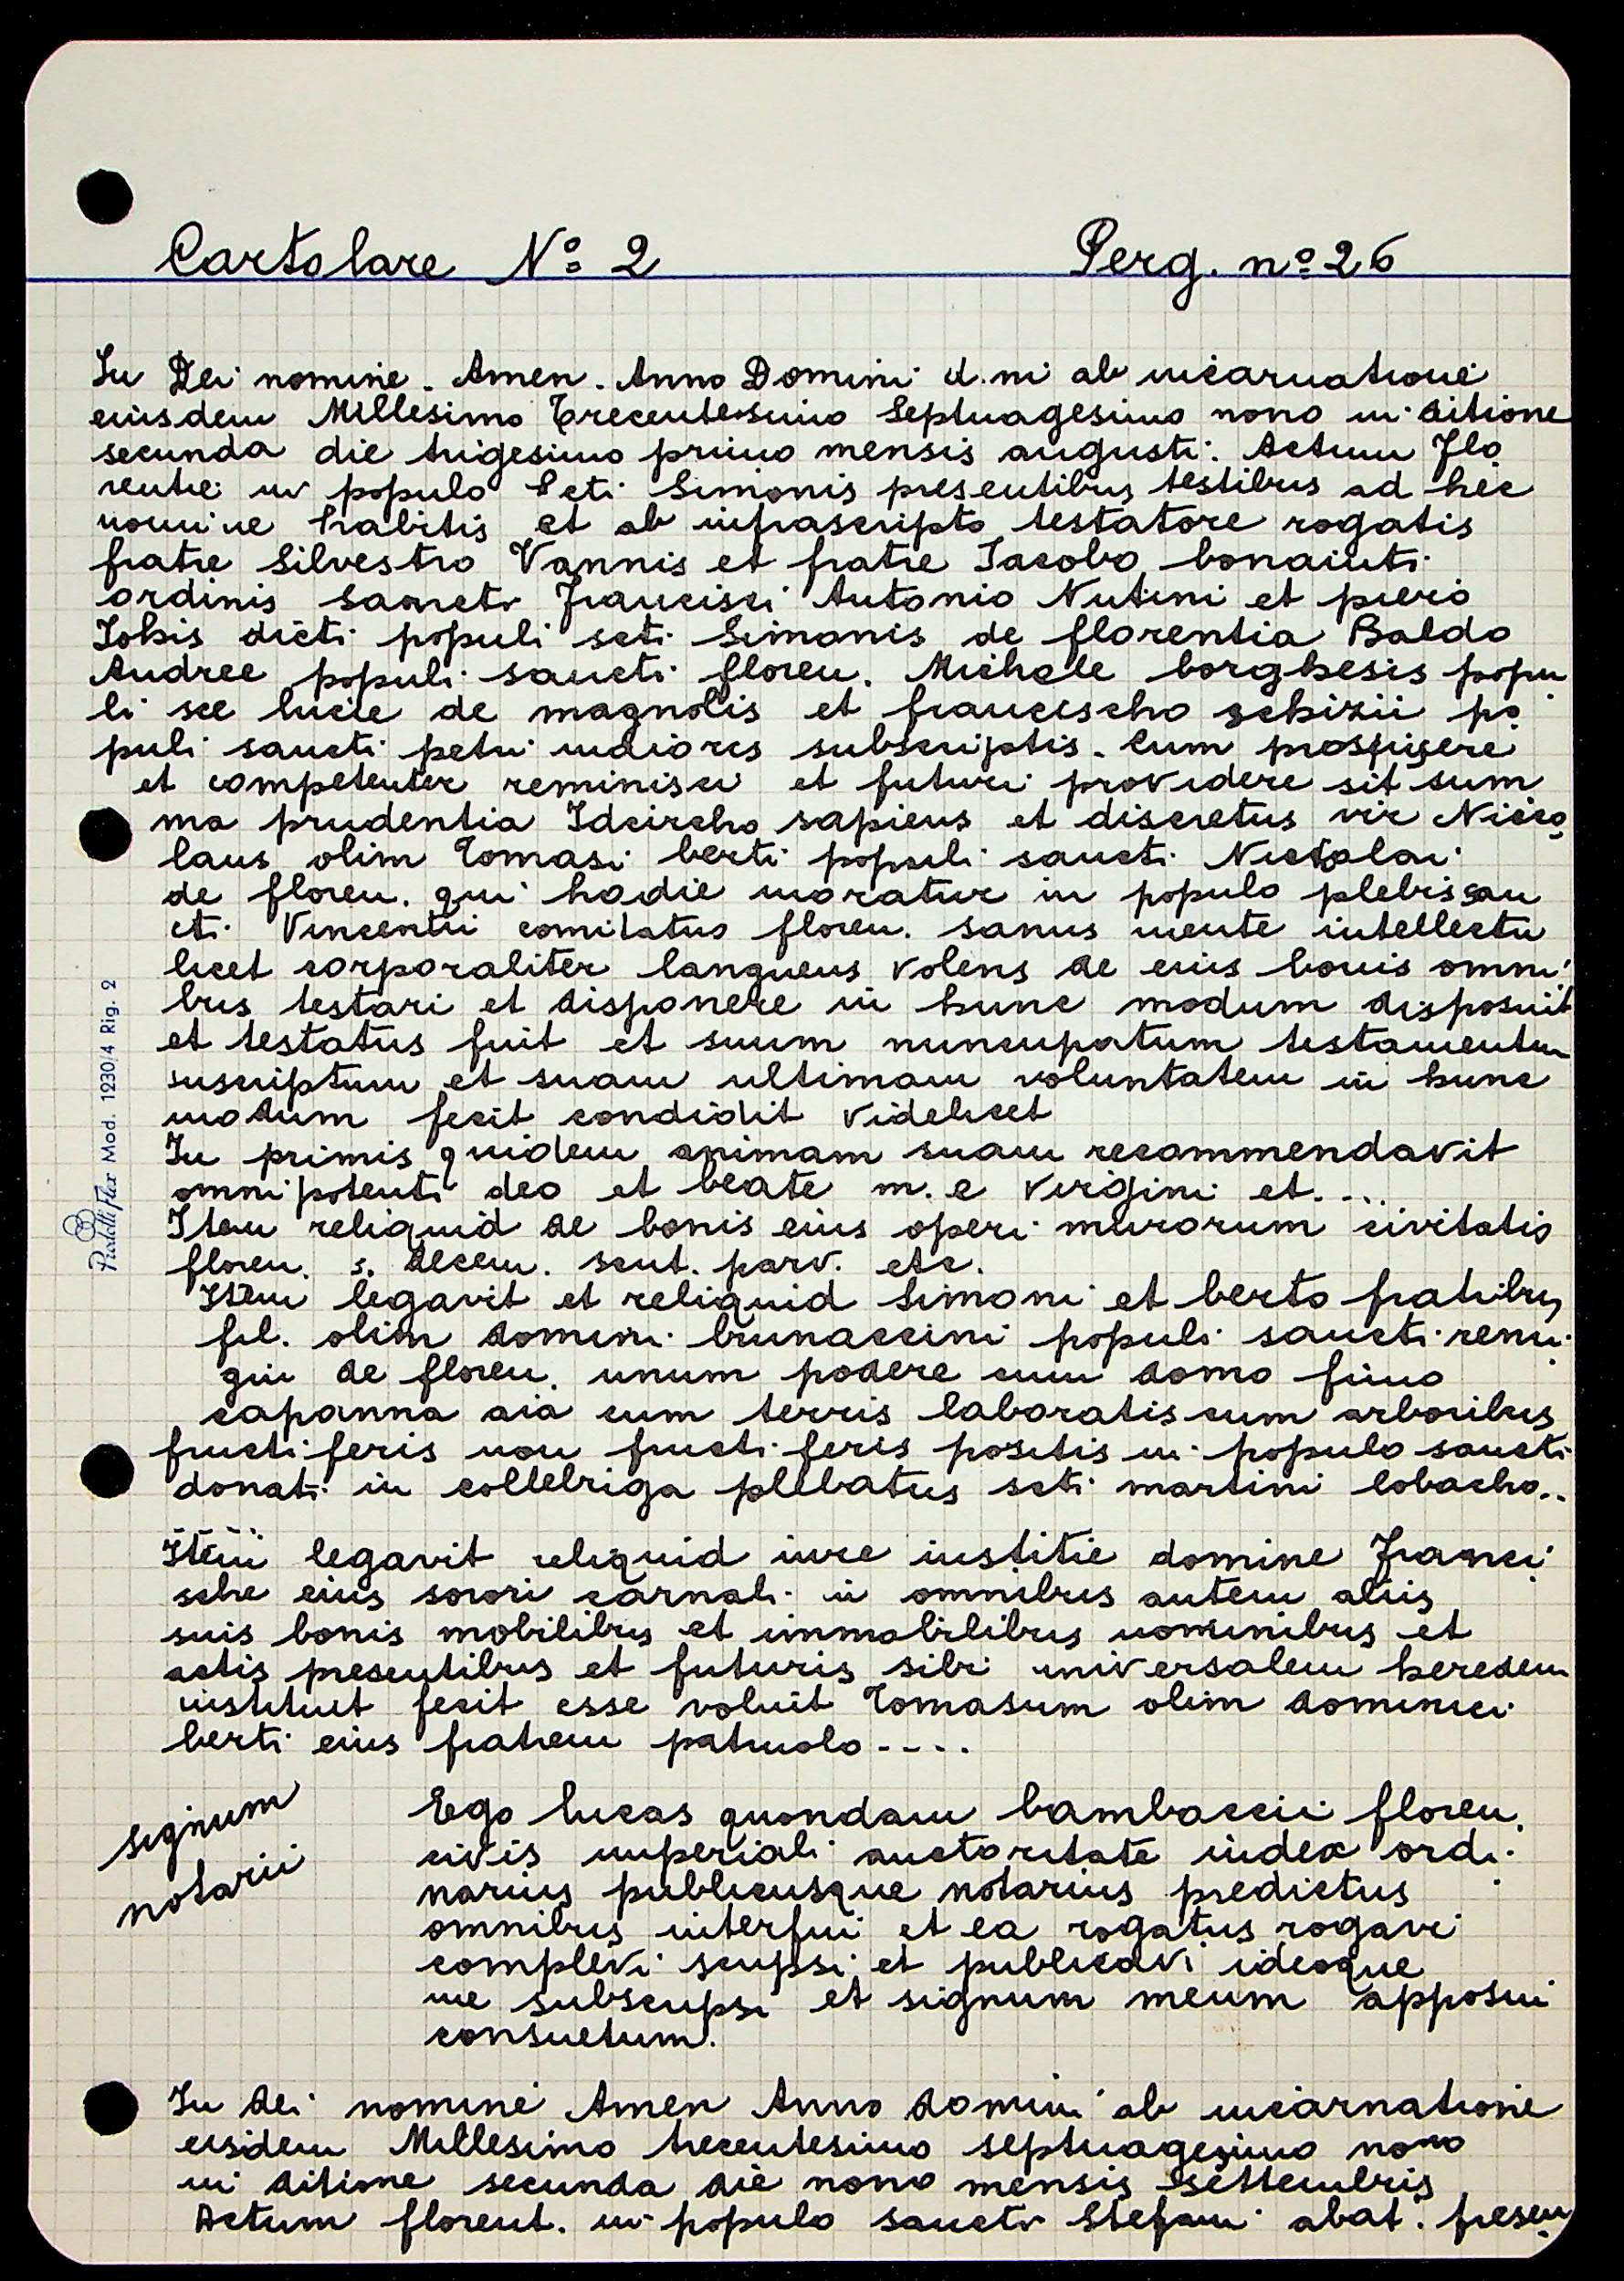 Cartolare Nº 2 Perg. nº 26
In Dei nomine. Amen. Anno Domini d.ni ab incarnatione
eiusdem Millesimo Trecentesimo Septuagesimo nono in ditione
secunda die trigesimo primo mensis augusti. Actum Flo
rentie in populo Scti Simonis presentibus testibus ad hec
nomine habitis et ab infrascripto testatore rogatis
fratre Silvestro Vannis et fratre Iacobo bonaiuti
ordinis sancti Francisci Antonio Nutini et piero
Iohis dicti populi scti Simonis de florentia Baldo
Andree populi sancti floren. Michele borghesis popu
li sce lucie de magnolis et francescho schizii po
puli sancti petri maioris subscriptis. Cum prospicere
et competenter reminisci et futuri providere sit sum
ma prudentia Idcircho sapiens et discretus vir Nicco
laus olim Tomasi berti populi sancti Nicholai
de floren. qui hodie moratur in populo plebis san
cti Vincentii comitatus floren. sanus mente intellectu
licet corporaliter languens volens de eius bonis omni
bus testari et disponere in hunc modum disposuit
et testatus fuit et suum nuncupatum testamentum
suscriptum et suam ultimam voluntatem in hunc
modum fecit condidit videlicet
In primis quidem animam suam recommendavit
omnipotenti deo et beate m. e virgini et....
Item reliquid de bonis eius operi murorum civitatis
floren. s. decem. sent. parv. etc.
Item legavit et reliquid Simoni et berto fratribus
fil. olim domini brunaccini populi sancti remi
gii de floren. unum podere cum domo furno
capanna aia cum terris laboratis cum arboribus
fructiferis non fructiferis positis in populo sancti
donati in collebriga plebatus scti martini lobacho..
Item legavit reliquid iure institie domine Franci
sche eius sorori carnali in omnibus autem aliis
suis bonis mobilibus et immobilibus nominibus et
actis presentibus et futuris sibi universalem heredem
instituit fecit esse voluit Tomasum olim dominici
berti eius fratrem patruolo....
signum
notarii
Ego lucas quondam bambaccii floren.
civis imperiali auctoritate iudex ordi
narius publicusque notarius predictus
omnibus interfui et ea rogatus rogavi
complevi scripsi et publicavi ideoque
me subscripsi et signum meum apposui
consuetum.
In dei nomine Amen Anno domini ab incarnatione
eisdem Millesimo trecentesimo septuagesimo nono
in ditione secunda die nono mensis Settembris
Actum florent. in populo sancti Stefani abat. presen
Pratelli Flex Mod. 1230/4 Rig. 2